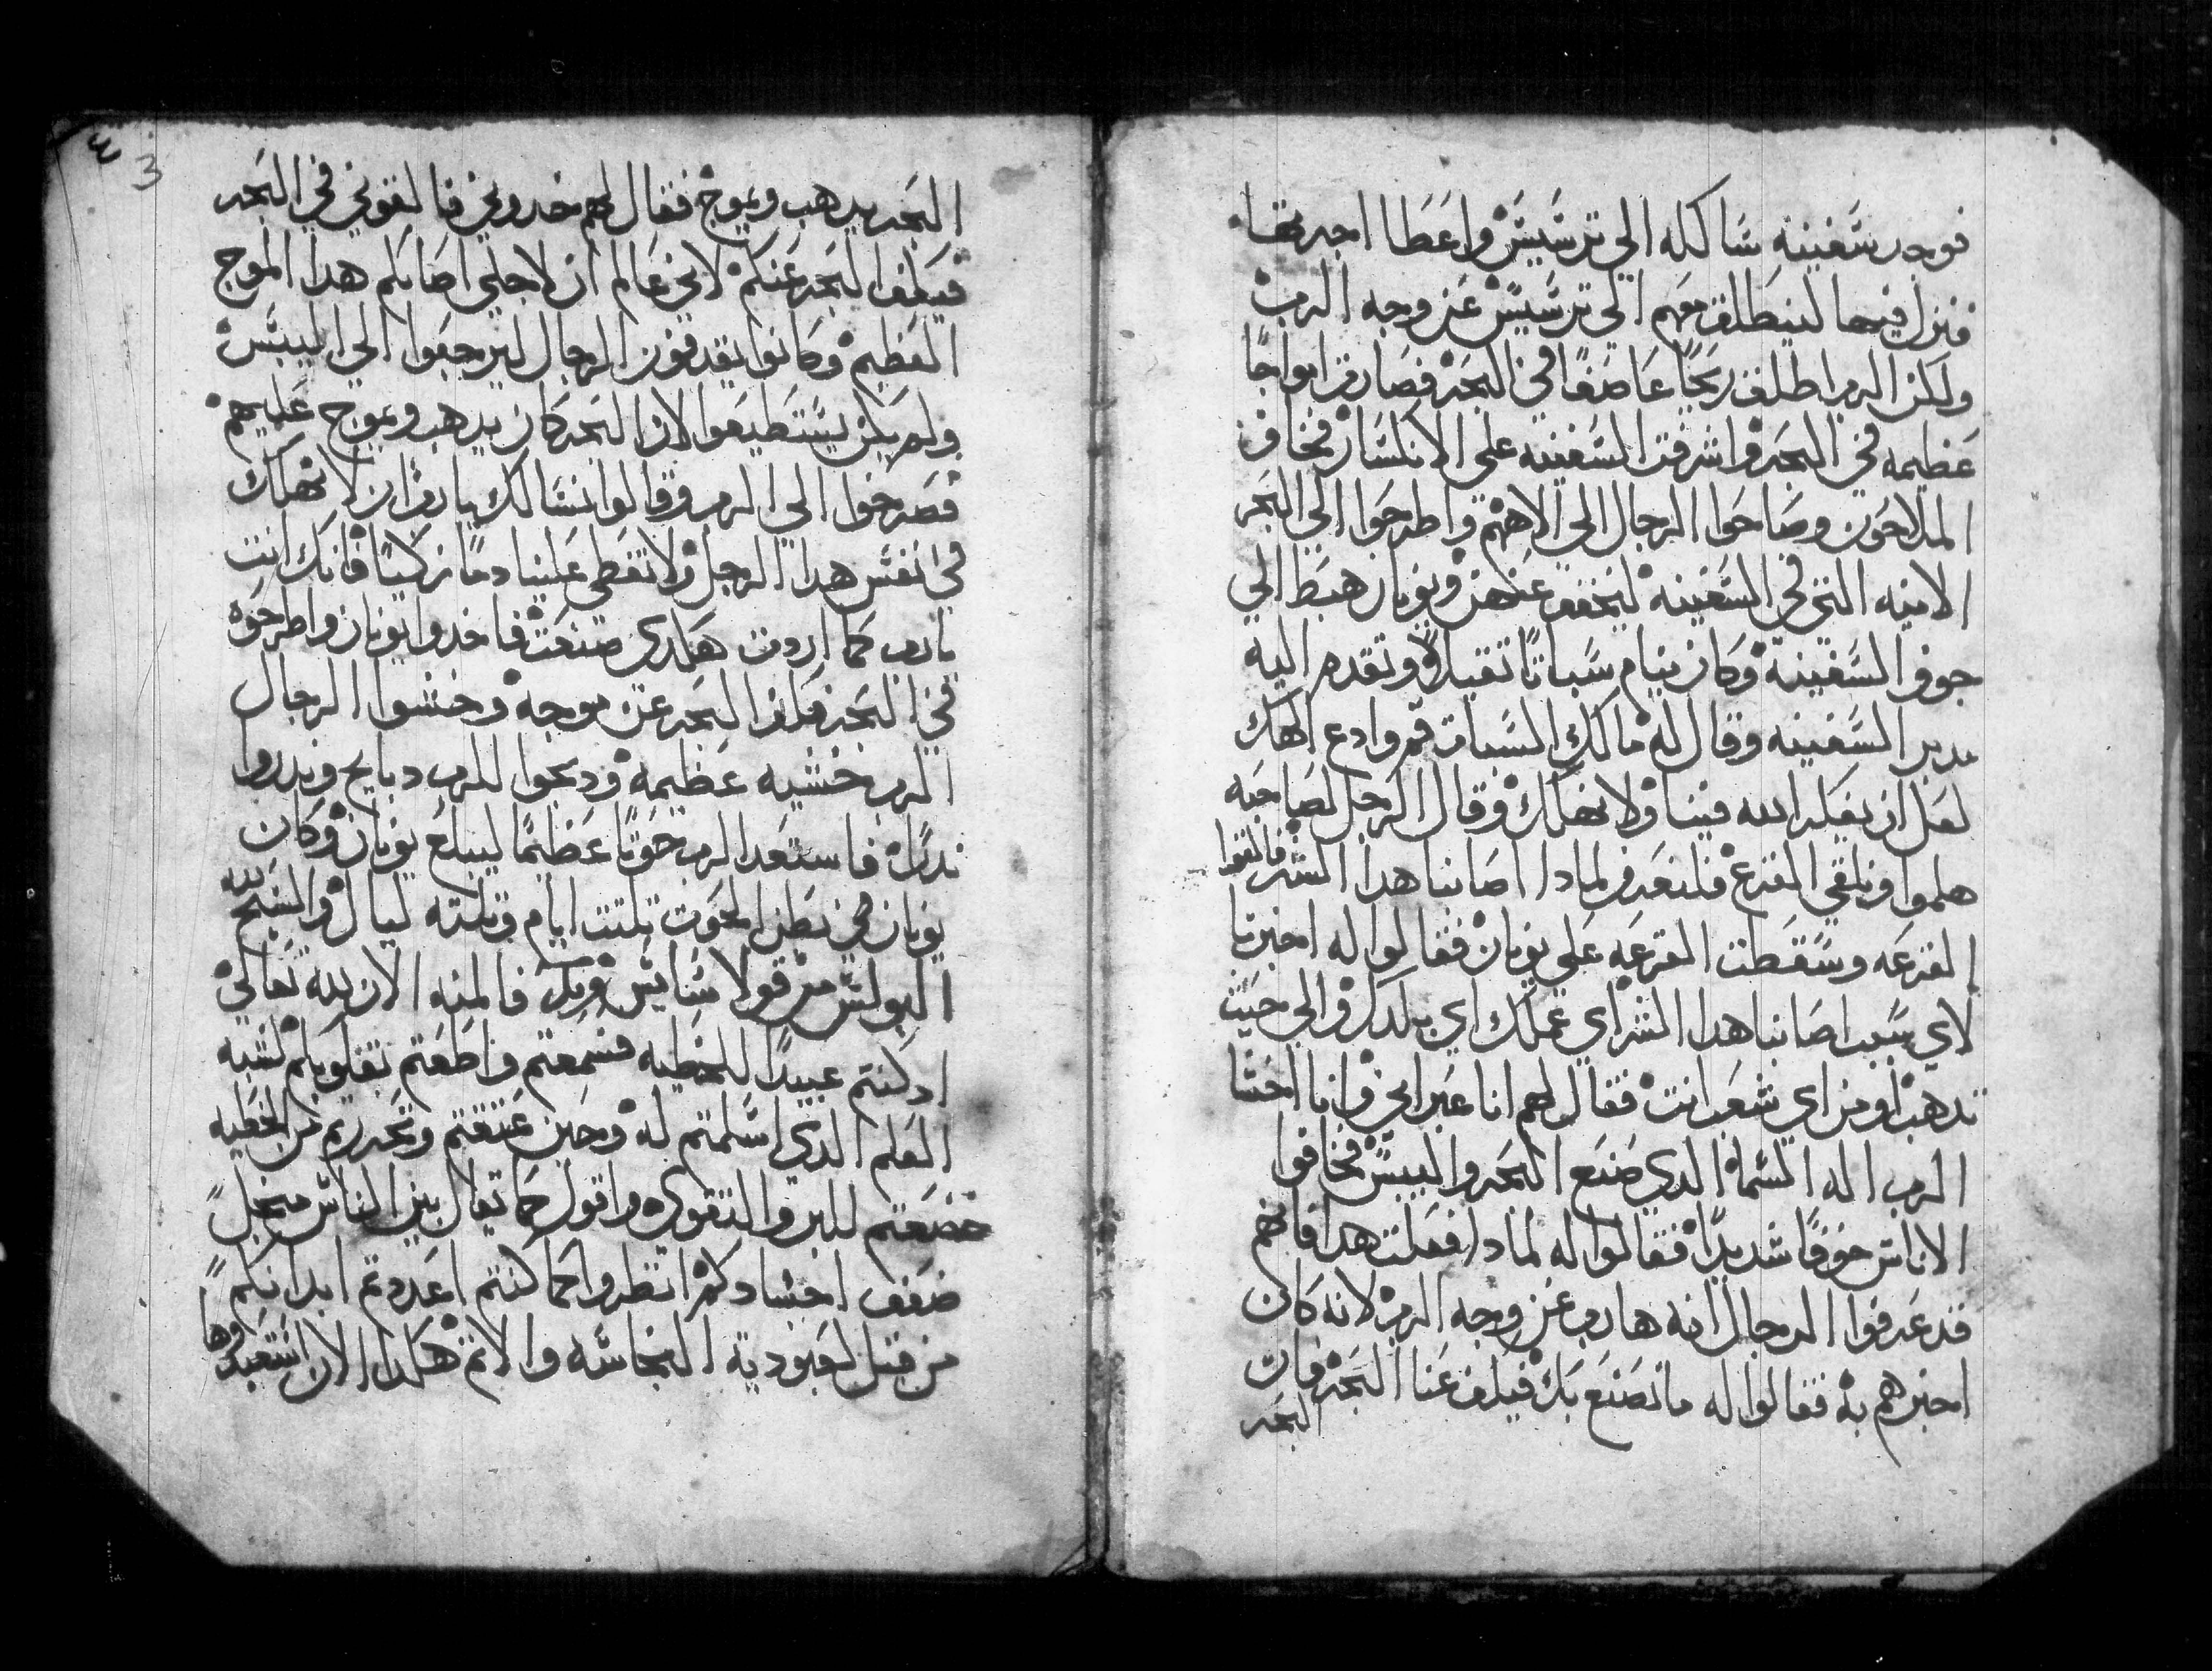 فوجد سفينه سالكه الي ترسيس واعطا اجرتها
فنزل فيها لينطلق معهم الي ترسيس عن وجه الرب
ولكن الرب اطلق ريحًا عاصفًا في البحر فصارت امواجًا
عظيمه في البحر واشرفت السفينه على الانكسار فخاف
الملاحون وصاحوا الرجال الي الاههم واطرحوا الي البحر
الانيه التي في السفينه ليخفف عنهن ويونان هبط الي
جوف السفينة وكان ينام سباتًا تقيلاً وتقدم اليه
مدبر السفينه وقال له مالك السبات قم وادع الهك
لعل ان يفكر الله فينا ولا نهلك وقال الرجل لصاحبه
هلموا ونلقي القرع فلنعرف لمادا اصابنا هدا الشر فالقوا
القرعه وسقطت القرعه على يونان فقالوا له اخبرنا
لاي سبب اصابنا هدا الشر اي عملك اي بلدك والي حيت
تدهب او من اي شعب انت فقال لهم انا عبراني وانا اخشا
الرب اله السما الدي صنع البحر واليبس فخافوا
الاناس خوفًا شديدًا فقالوا له لمادا فعلت هدا فانهم
قد عرفوا الرجال انه هارب عن وجه الرب لانه كان
اخبرهم به فقالوا له ما نصنع بك فيكف عنا البحر فان
البحر
٣
3
البحر يدهب ويموج فقال لهم خدوني فالقوني في البحر
فيكف البحر عنكم لاني عالم ان لاجلي اصابكم هدا الموج
العظيم وكانوا يقدفون الرجال ليرجعوا الي اليبس
ولم يكن يستطيعوا لان البحر كان يدهب ويموج عليهم
فصرخوا الي الرب وقالوا نسالك يا رب ان لا نهلك
في نفس هدا الرجل ولا تعطى علينا دمًا زكيًا فانك انت
يا رب كما اردت هكدي صنعت فاخدوا يونان واطرحوه
في البحر فكف البحر عن موجه وخشوا الرجال
الرب خشيه عظيمه ودبحوا للرب دبايح وندروا
ندرًا فاستعد الرب حوتًا عظيمًا ليبلع يونان وكان
يونان في بطن الحوت تلتت ايام وتلته ليال والسبح لله
البولس من قولا ساتس فالمنه الان لله تعالي
اد كنتم عبيدًا للخطيه فسمعتم واطعتم بقلوبكم لشبه
العلم الدي اسلمتم له وحين عتقتم وتحررتم من الخطيه
خضعتم للبر والتقوي واقول كما يقال بين الناس من اجل
ضعف اجسادكم انظروا كما كنتم اعددتم ابدانكم
من قبل لعبودية النجاسه والاتم هكدا الان استعبدوها